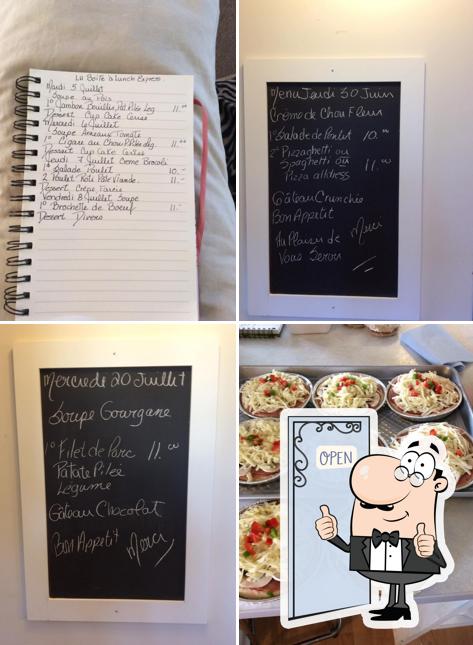 La Boîte à Lunch Express.
Mardi 5 Juillet
Soupe au Pois
1° Jambon Bouillie, Pat. Pilée Leg 11.00
Dessert Cup Cake
Mercredi 6 Juillet
Soupe Tomate
1° Cigare au Chou P.Pilée leg. 11.00
Dessert Cup Cake
Jeudi 7 Juillet Creme Brocoli
1° Salade Poulet 10.-
2 Poulet Roti Pilée Viande. 11.-
Dessert Crêpe Farcie
Vendredi 8 Juillet Soupe
1° Brochette de Boeuf 11.-
Dessert Divers
Menu Jeudi 30 Juin
Crème de Chou Fleur
1° Salade de Poulet 10.00
2° Pizzaghetti ou
Spaghetti ou 11.00
Pizza all dress
Gâteau Crunchie
Bon Appetit
Au Plaisir de Merci
Vous Servir
Mercredi 20 Juillet
Soupe Gourgane
1° Filet de Porc 11.00
Patate Pilée
Légume
Gâteau Chocolat
Bon Appetit Merci
OPEN